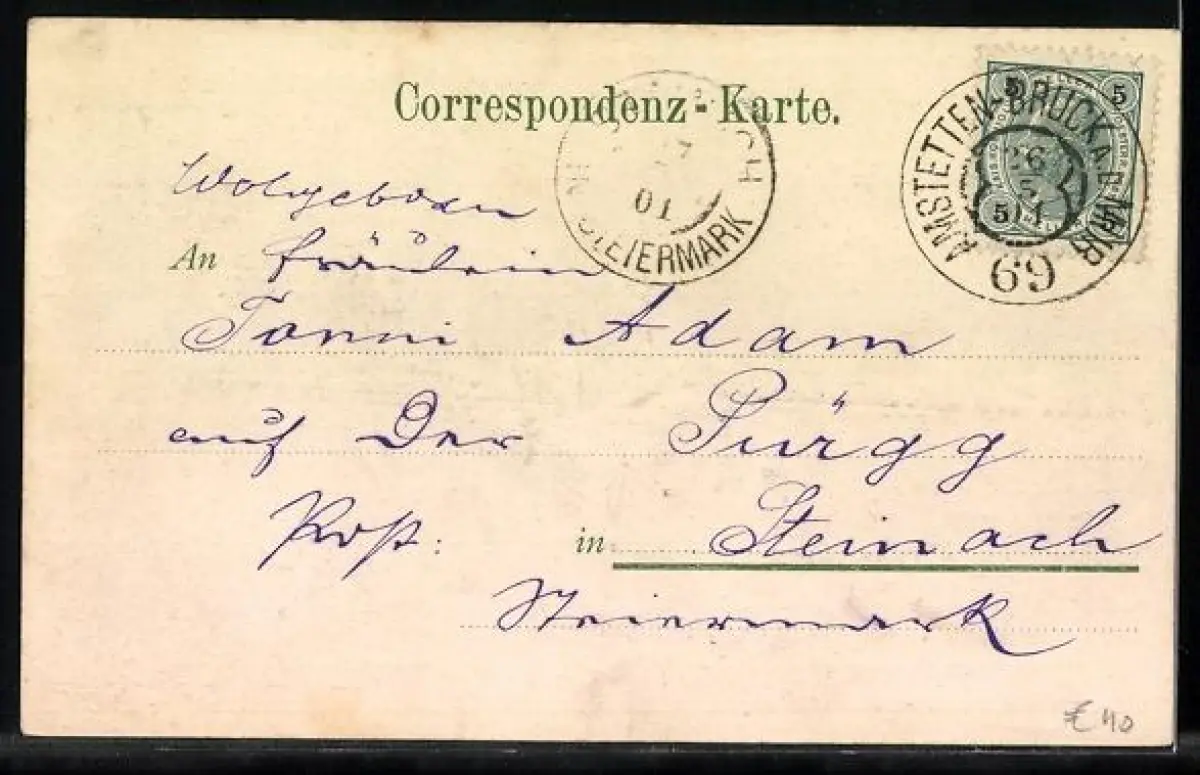 Correspondenz-Karte.
5 5
AMSTETTEN-BRUCK A.D. MUR
26
5
5 01
69
CH
01
STEIERMARK
Wolgeboren
An Fräulein
Tonni Adam
auf Der Pürgg
Post: in Steinach
Steiermark
€ 40